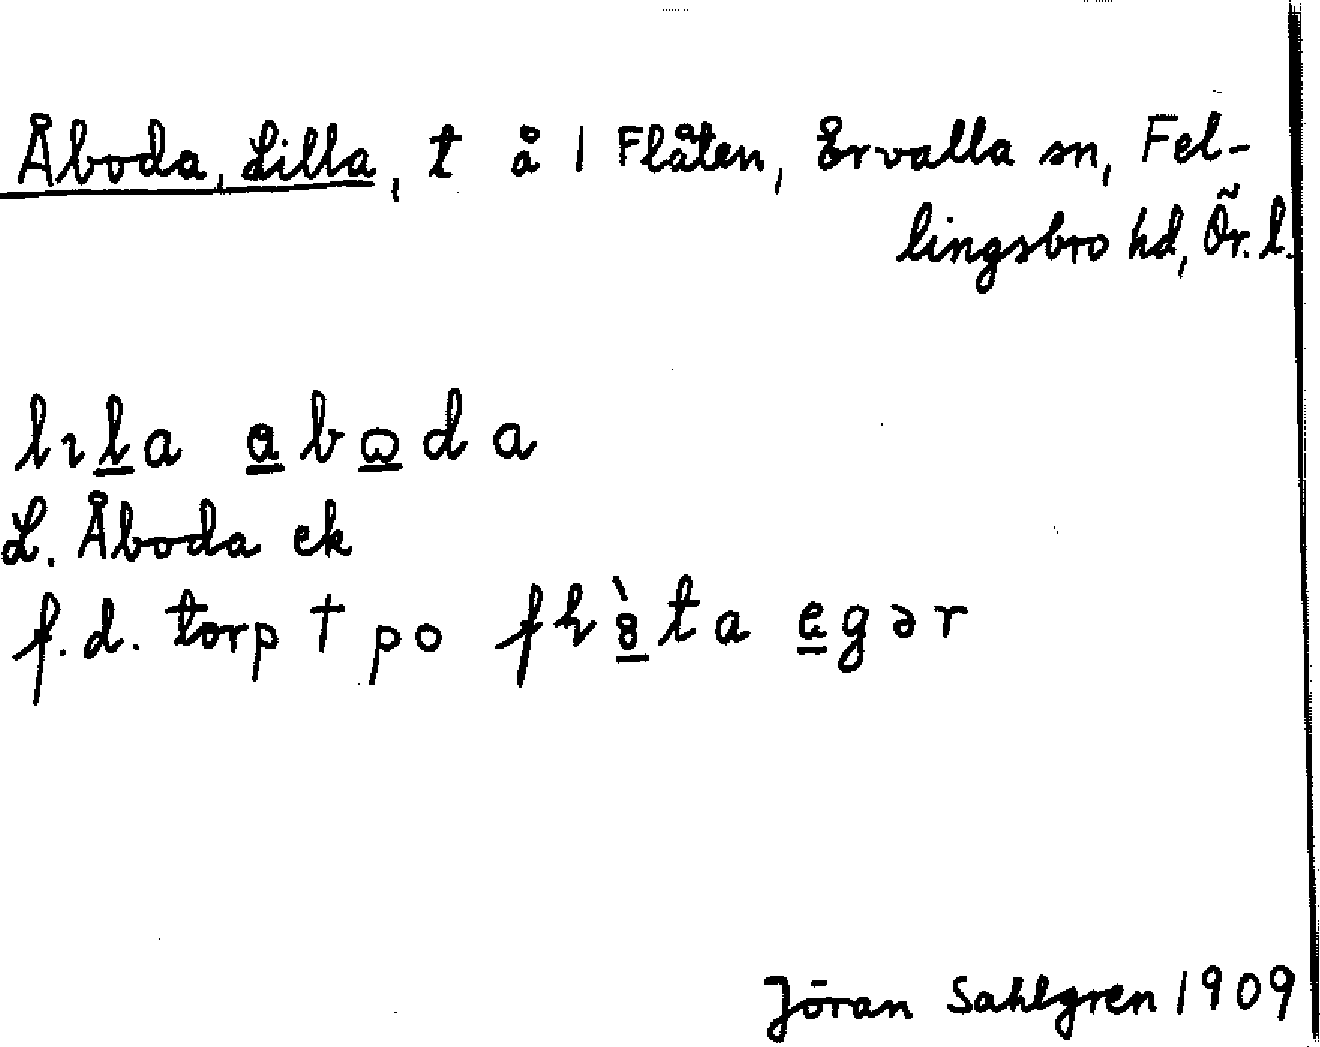 Åboda, Lilla, t å 1 Flåten, Ervalla sn, Fel-
lingsbro hd, Ör. l.
lıl̲a a̲bɷ̲da
L. Åboda ek
f.d. torp † po
Jöran Sahlgren 1909